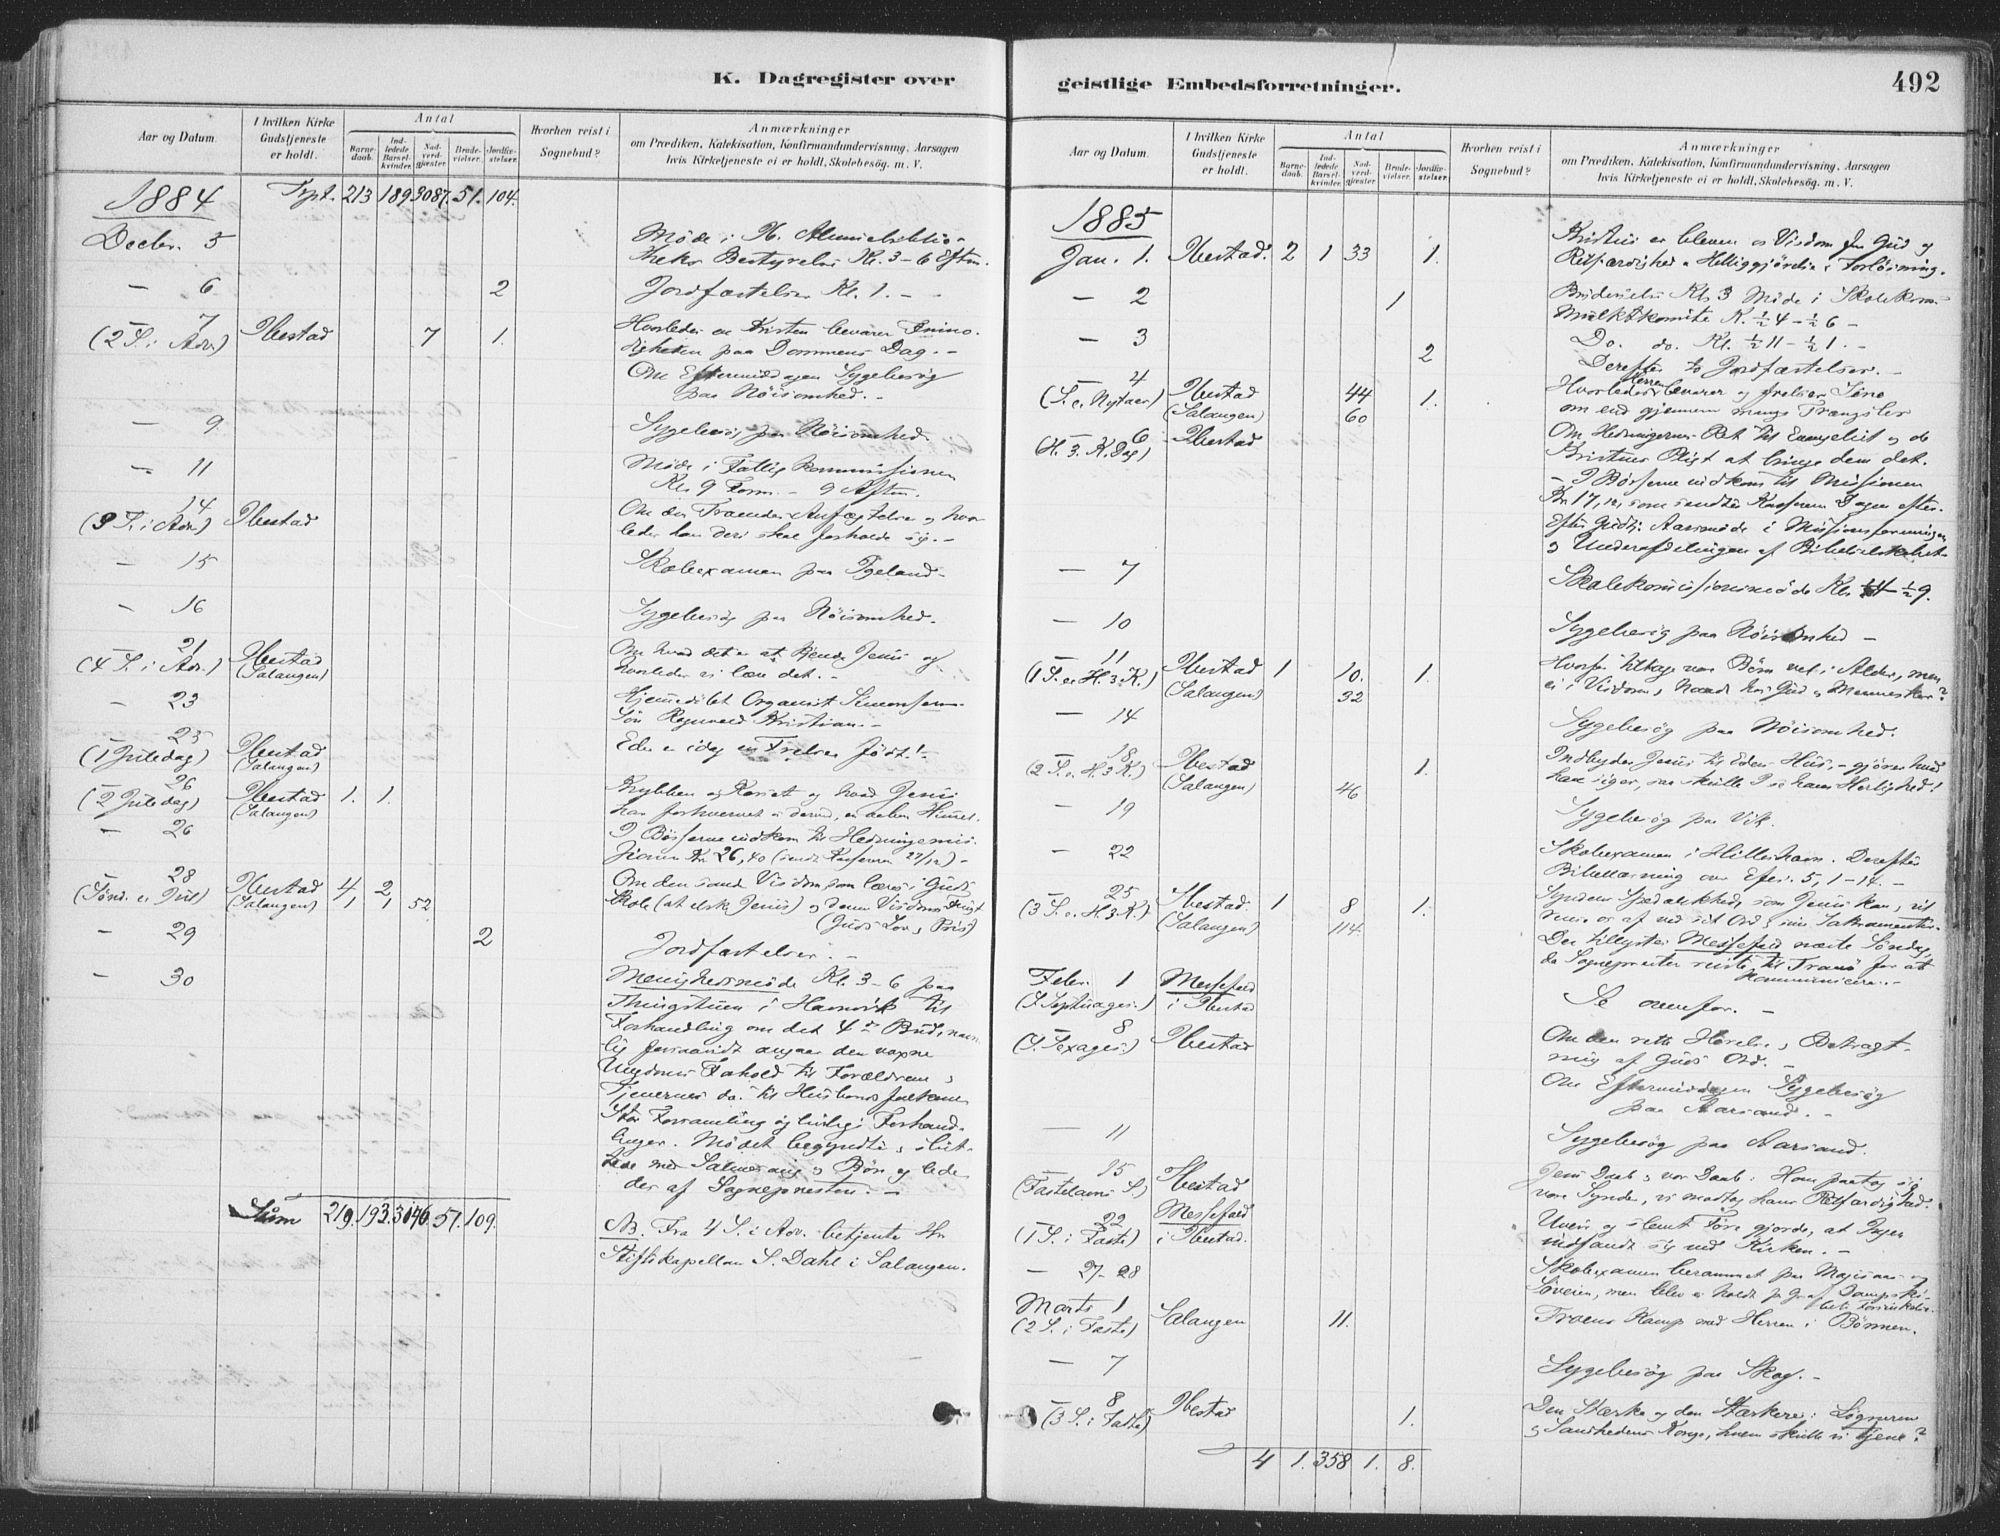 K. Dagregister over
Aar og Datum.
I hvilken Kirke Gudstjeneste er holdt.
Antal
Barnedaab.
Indledede Barselkvinder.
Nadverdgjester.
Brudevielser.
Jordfæstelser.
Hvorhen reist i Sognebud?
Anmærkninger
om Prædiken, Katekisation, Konfirmandundervisning, Aarsagen
hvis Kirketjeneste ei er holdt, Skolebesög m. V.
1884 Trpt. 213 189 3087. 51. 104.
Decbr. 5 Møde i
Bestyrelse Kl. 3-6 Eftm.
— 6 2 Jordfæstelser Kl. 1. —
— 7
(2 S. i Adv.) Ibestad 7 1. Hvorledes en Kristen bevarer Frimo-
digheten paa Dommens Dag. —
Om Eftermiddagen Sygebesøg
paa Nöisomhed. —
— 9. Sygebesøg paa Nöisomhed.
— 11 Møde i Fattigkommissionen
Kl. 9 Form. — 9 Aften.
— 14
(3 S. i Adv.) Ibestad Om den Troendes Anfægtelser og hvor-
ledes han deri skal forholde sig. —
— 15 Skolexamen paa Ygeland.
— 16 Sygebesøg paa Nöisomhed.
— 21
(4 S. i Adv.) Ibestad
(Salangen) Om hvad det er at kjende Jesus og
hvorledes vi lære det. —
— 23 Hjemmedöbt Organist Simonsens
Sön Ragnvald Kristian. —
— 25
(1 Juledag) Ibestad
(Salangen) Eder er idag en Frelser födt! —
— 26
(2 Juledag) Ibestad
(Salangen) 1. 1. Krybben og Korset og hvad Jesus
har forhvervet os derved, en aaben Himel.
— 26 I Bøsserne indkom til Hedningemis-
sionen Kr. 26,40 (sendt Kasseren 27/12) —
— 28
(Sönd. e. Jul) Ibestad 4 2
(Salangen) 1 1 52. Om den sande Visdom som læres i Guds
Skole (at elske Jesus) og denne Visdoms Frugt
(Guds Lov, Pris)
— 29 2 Jordfæstelser. —
— 30 Menighedsmøde Kl. 3-6 paa
Thingstuen i Hamnvik til
Forhandling om det 4de Bud, navn-
lig forsaavidt angaar den voxne
Ungdoms Forhold til Forældrene,
Tjenernes do. til Husbondsfolkene.
Stor Forsamling og livlige Forhand-
linger. Mødet begyndte og slut-
tede med Salmesang og Bøn og lede-
des af Sognepresten. —
Sum 219. 193. 3146. 51. 109.
NB. Fra 4 S. i Adv. betjente Hr
Stiftskapellan S. Dahl i Salangen.
geistlige Embedsforretninger.
492
Aar og Datum.
I hvilken Kirke Gudstjeneste er holdt.
Antal
Barnedaab.
Indledede Barselkvinder.
Nadverdgjester.
Brudevielser.
Jordfæstelser.
Hvorhen reist i Sognebud?
Anmærkninger
om Prædiken, Katekisation, Konfirmandundervisning, Aarsagen
hvis Kirketjeneste ei er holdt, Skolebesög m. V.
1885
Jan. 1. Ibestad. 2 1 33 1. Kristus er bleven os Visdom fra Gud og
Retfærdighed og Helliggjörelse og Forlösning.
— 2 1 Brudevielse Kl. 3 Møde i Skolekom-
Kl. ½4 - ½6 —
— 3 2 Do. do. Kl. ½11 - ½1. —
Derefter to Jordfæstelser. —
— 4
(S. e. Nytaar) Ibestad 44 1.
(Salangen) 60 Hvorledes Herren bevarer og frelser Sine
om end gjennem mange Trængsler
— 6
(H. 3. K. Dag) Ibestad Om Hedningernes Ret til Evangeliet og de
Kristnes Pligt at bringe dem det.
— I Bøsserne indkom til Missionen
Kr. 17,12, som sendtes Kasseren Dagen efter.
Efter Gudtj. Aarsmøde i Missionsforeningen
og Underafdelingen af Bibelselskabet —
— 7 Skolekomissionsmøde Kl. 4 - ½9.
— 10 Sygebesøg paa Nöisomhed —
— 11
(1 S. e. H. 3. K.) Ibestad 1 10. 1.
(Salangen) 32 Hvorfor tiltage vore Børn vel i Alder, men
ei i Visdom, Naade hos Gud og Mennesker?
— 14 Sygebesøg paa Nöisomhed.
— 18
(2 S. e. H. 3 K.) Ibestad 1.
(Salangen) 46 Indbyder Jesus til Eders Hus, — gjører hvad
han siger, saa skulle I se hans Herlighed!
— 19 Sygebesøg paa Vik.
— 22 Skolexamen i Hilleshavn. Derefter
Bibellæsning over Efes. 5, 1-14. —
— 25
(3 S. e. H. 3 K.) Ibestad. 1 8 1.
(Salangen) 114. Syndens Spedalskhed, som Jesus kan, vil
rense os af ved sit Ord og sine Sakramenter.
Der tillystes Messefald næste Søndag,
da Sognepresten reiste til Tranø for at
kommunicere. —
Febr. 1
(S. Septuages.) Messefald
i Ibestad Se ovenfor. —
— 8
(S. Sexages.) Ibestad Om den rette Hørelse og Betragt-
ning af Guds Ord. —
Om Eftermiddagen Sygebesøg
paa Aarsand. —
— 11 Sygebesøg paa Aarsand.
— 15
(Fastelavns S.) Ibestad Jesu Daab og vor Daab: Han paatog sig
vore Synder, vi modtog hans Retfærdighed.
— 22
(1 S. i Faste) Messefald
i Ibestad. Uveir og slemt Føre gjorde, at Ingen
indfandt sig ved Kirken. —
— 27-28 Skolexamen berammet paa
men blev ei holdt p. Gr. af Dampski-
bets Forsinkelse.
Marts 1
(2 S. i Faste) Salangen 11. Troens Kamp med Herren i Bønnen.
— 7 Sygebesøg paa Skog. —
— 8
(3 S. i Faste) Ibestad 1. Den Stærke og den Stærkere: Løgneren
og Sandhedens Konge, hvem skulle vi tjene?
4 1. 358 1. 8.